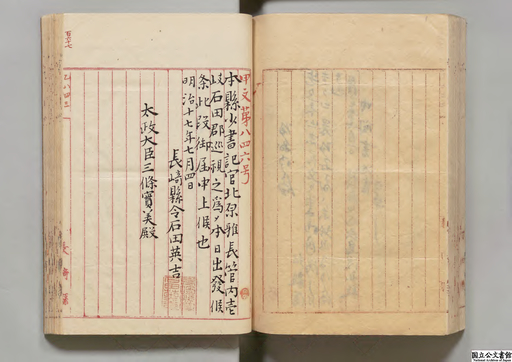 甲文第八四六号
本縣少書記官北原雅長管内壱
岐石田郡巡視之為メ本日出發候
条此段御届申上候也
明治十七年七月四日
長崎縣令石田英吉
太政大臣三條實美殿
長崎縣
国立公文書館
National Archives of Japan